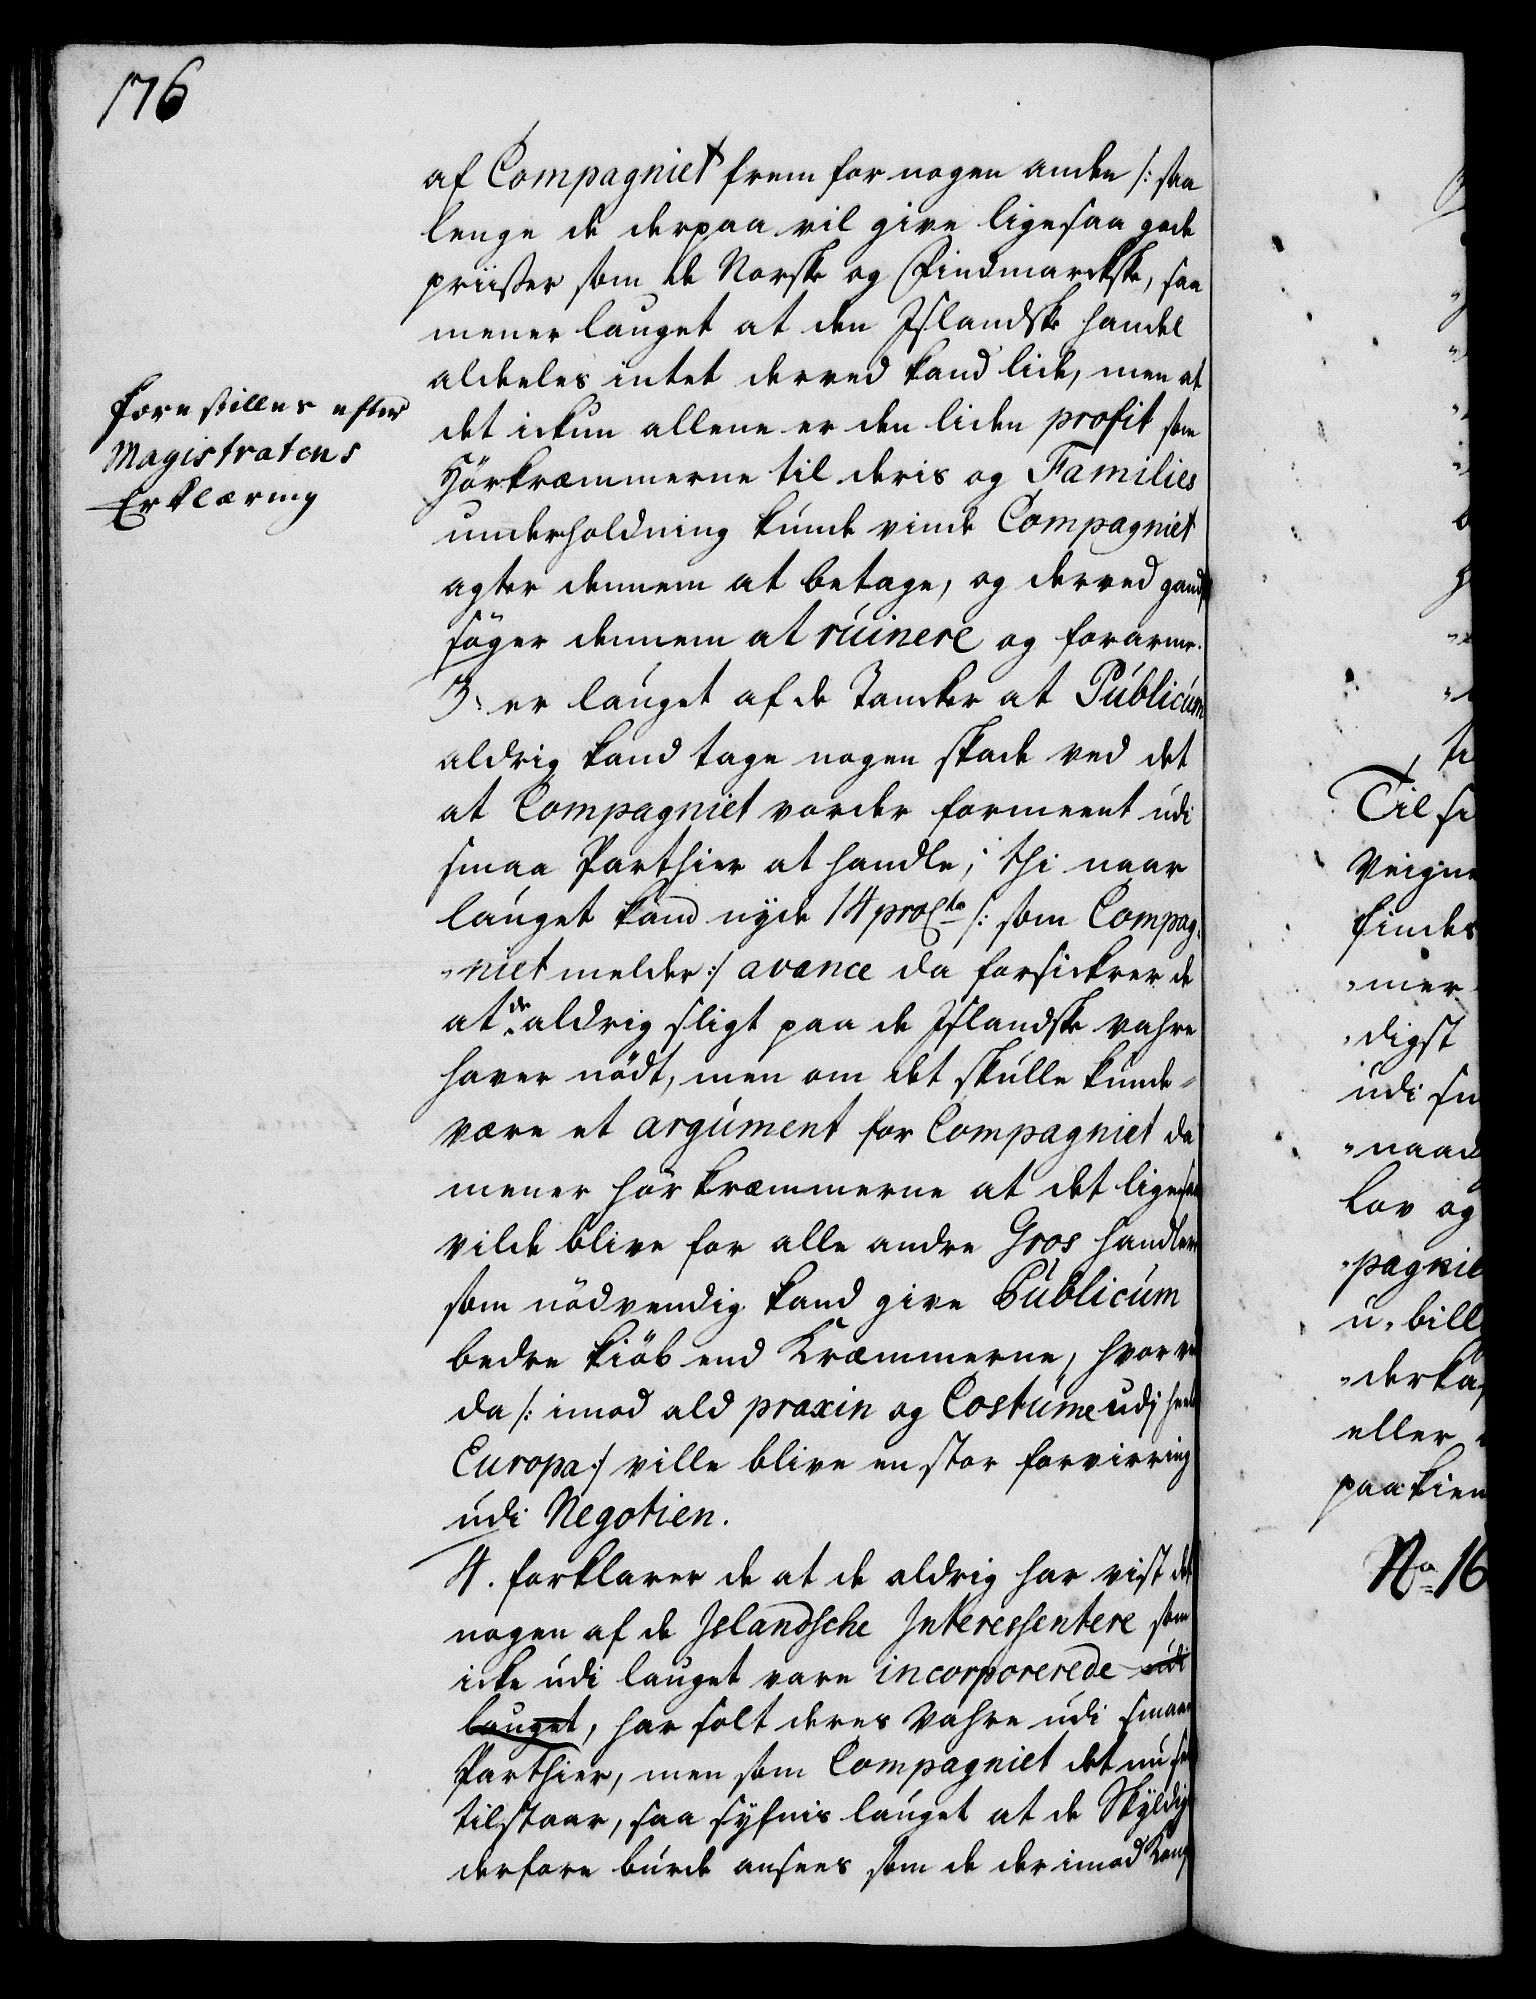 176
af Compagniet frem for nogen anden /: saa
lenge de derpaa vil give ligesaa gode
priisser som de Norske og Findmarckske, saa
mener lauget at den Islandske handel
aldeeles intet derved kand lide, men at
det ickun allene er den liden profit som
Hörkræmmerne til deris og Families
underholdning kunde vinde Compagniet
agter dennem at betage, og derved gand
söger dennem at ruinere og forarme.
3. er lauget af de Tancker at Publicum
aldrig kand tage nogen skade ved det
at Compagniet vorder formeent udi
smaa Parthier at handle; thi naar
lauget kand nyde 14 proCto /: som Compag-
niet melder :/ avance da forsickrer de
at de aldrig sligt paa de Islandske vahre
haver nödt, men om det skulle kunde
være et argument for Compagniet da
mener hörkræmmerne at det ligesaa
vilde blive for alle andre Gros handlere
som nödvendig kand give Publicum
bedre kiöb end Kræmmerne, hvor ved
da /: imod ald praxin og Costume udj heele
Europa :/ ville blive en stor forvirring
udi Negotien.
4. forklarer de at de aldrig har vist det
nogen af de Jslandsche Jnteressentere som
icke udi lauget vare incorporerede udi
lauget, har solt deres Vahre udi smaae
Parthier, men som Compagniet det nu self
tilstaar, saa syfnis lauget at de Skyldig
derfore burde ansees som de der imod Kong
forestilles efter
Magistratens
Erklæring
Til
Veigne
findes
mer
digst
udi
naad
lov og
pagnie
u-bill
derka
eller
paakien
No 16